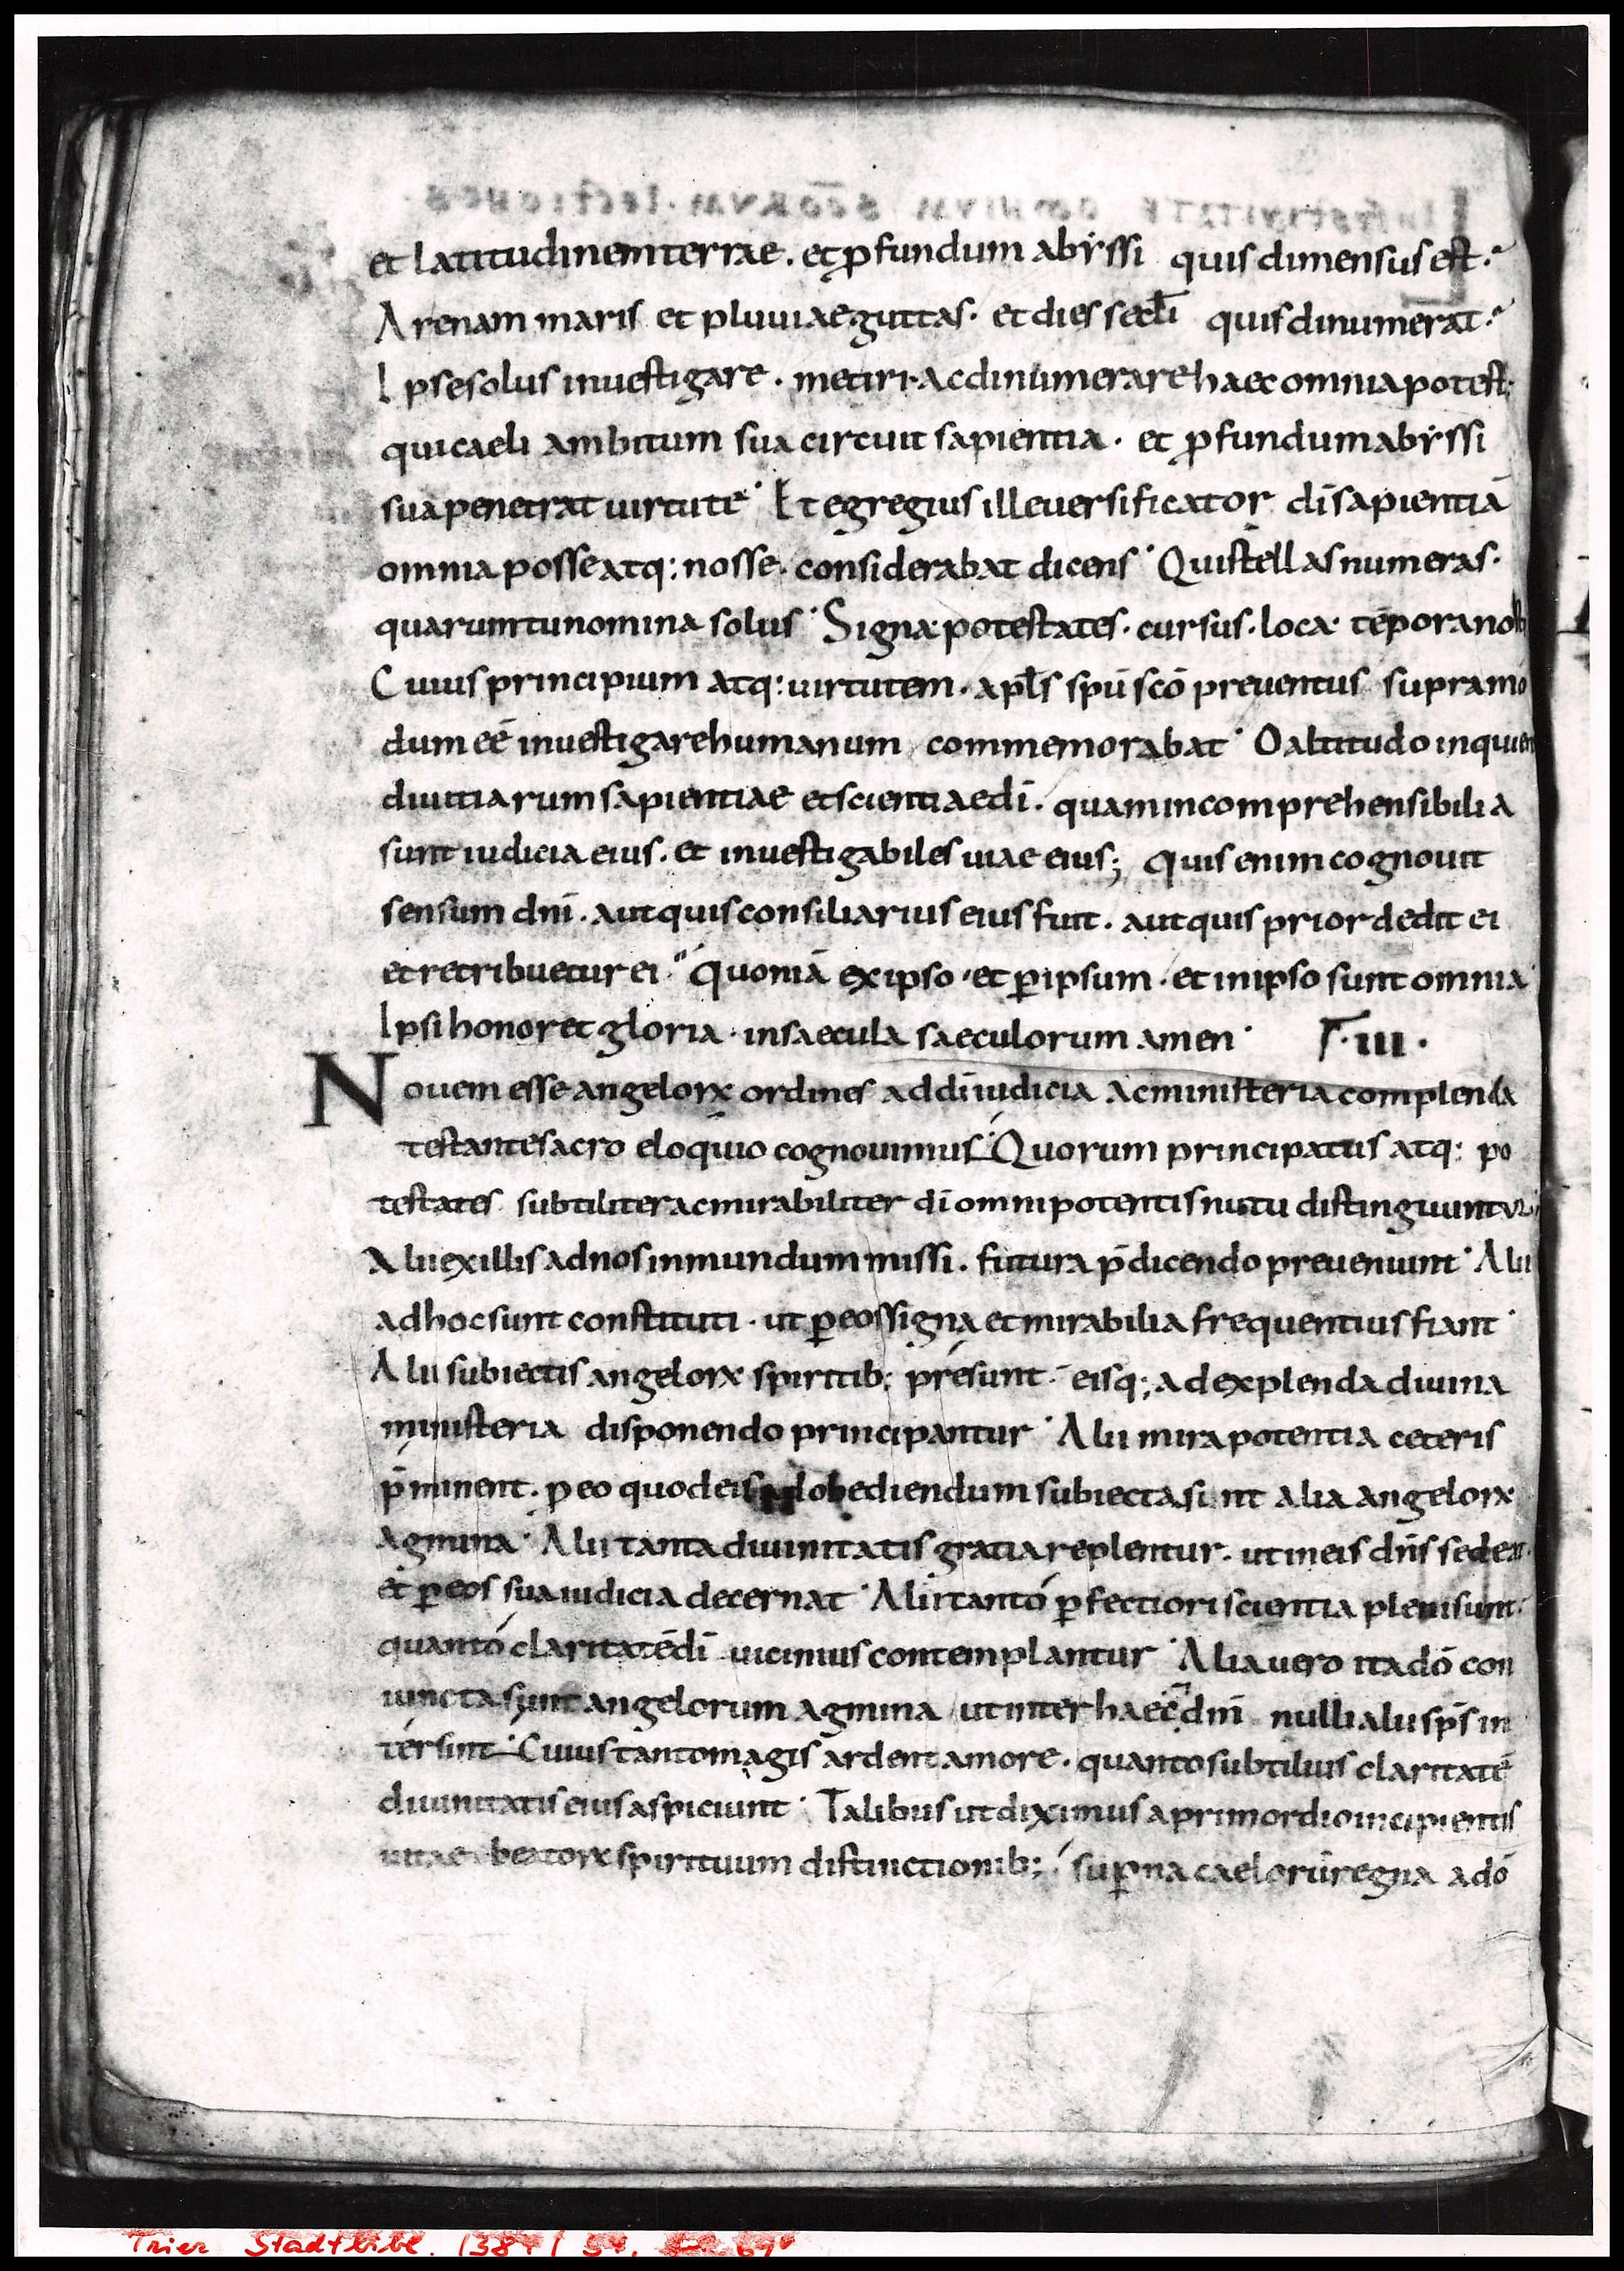 et latitudinem terrae. et ꝓfundum abẏssi quis dimensus est.
Arenam maris et pluuiae guttas. et dies secłi quis dinumerat.
Ipse solus inuestigare. metiri. ac dinumerare haec omnia potest;
qui caeli ambitum sua circuit sapientia. et ꝓfundum abẏssi
sua penetrat uirtute. Et egregius ille uersificator dī sapientiā
omnia posse atq: nosse. considerabat dicens. Qui stellas numeras.
quarum tu nomina solus. Signa. potestates. cursus. loca. tēpora
Cuius principium atq: uirtutem. apłs spū scō preuentus supra mo
dum eē inuestigare humanum commemorabat. O altitudo inquiens
diuitiarum sapientiae et scientiae dī. quam incomprehensibilia
sunt iudicia eius. et inuestigabiles uiae eius; quis enim cognouit
sensum dnī. aut quis consiliarius eius fuit. aut quis prior dedit ei
et retribuetur ei. Quoniā ex ipso. et ꝑ ipsum. et in ipso sunt omnia.
Ipsi honor et gloria. in saecula saeculorum amen. F. III.
Nouem esse angeloꝝ ordines ad dī iudicia ac ministeria complenda
testante sacro eloquio cognouimus. Quorum principatus atq: po
testates subtiliter ac mirabiliter dī omnipotentis nutu distinguuntur.
Alii ex illis ad nos in mundum missi. futura p̄dicendo preueniunt. Alii
ad hoc sunt constituti. ut ꝑ eos signa et mirabilia frequentius fiant.
Alii subiectis angeloꝝ spiritib; presunt. eisq; ad explenda diuina
ministeria disponendo principantur. Alii mira potentia ceteris
p̄minent. p eo quod eis ad obediendum subiecta sint alia angeloꝝ
agmina. Alii tanta diuinitatis gratia replentur. ut in eis dn̄s sedeat.
et ꝑ eos sua iudicia decernat. Alii tantó ꝑfectiori scientia pleni sunt.
quantó claritatē dī uicinius contemplantur. Alia uero ita dō con
iuncta sunt angelorum agmina ut inter haec dnī nulli alii sp̄s in
tersint. Cuius tanto magis ardent amore. quanto subtilius claritatē
diuinitatis eius aspiciunt. Talibus ut diximus a primordio incipientis
uitae beatoꝝ spirituum distinctionib; suꝑna caelorū regna a dō
Trier Stadtbibl.